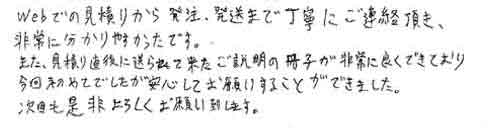 Webでの見積りから発注、発送まで丁寧にご連絡頂き、
非常に分かりやすかったです。
また、見積り直後に送られて来たご説明の冊子が非常に良くできており
今回初めてでしたが安心してお願いすることができました。
次回も是非よろしくお願い致します。